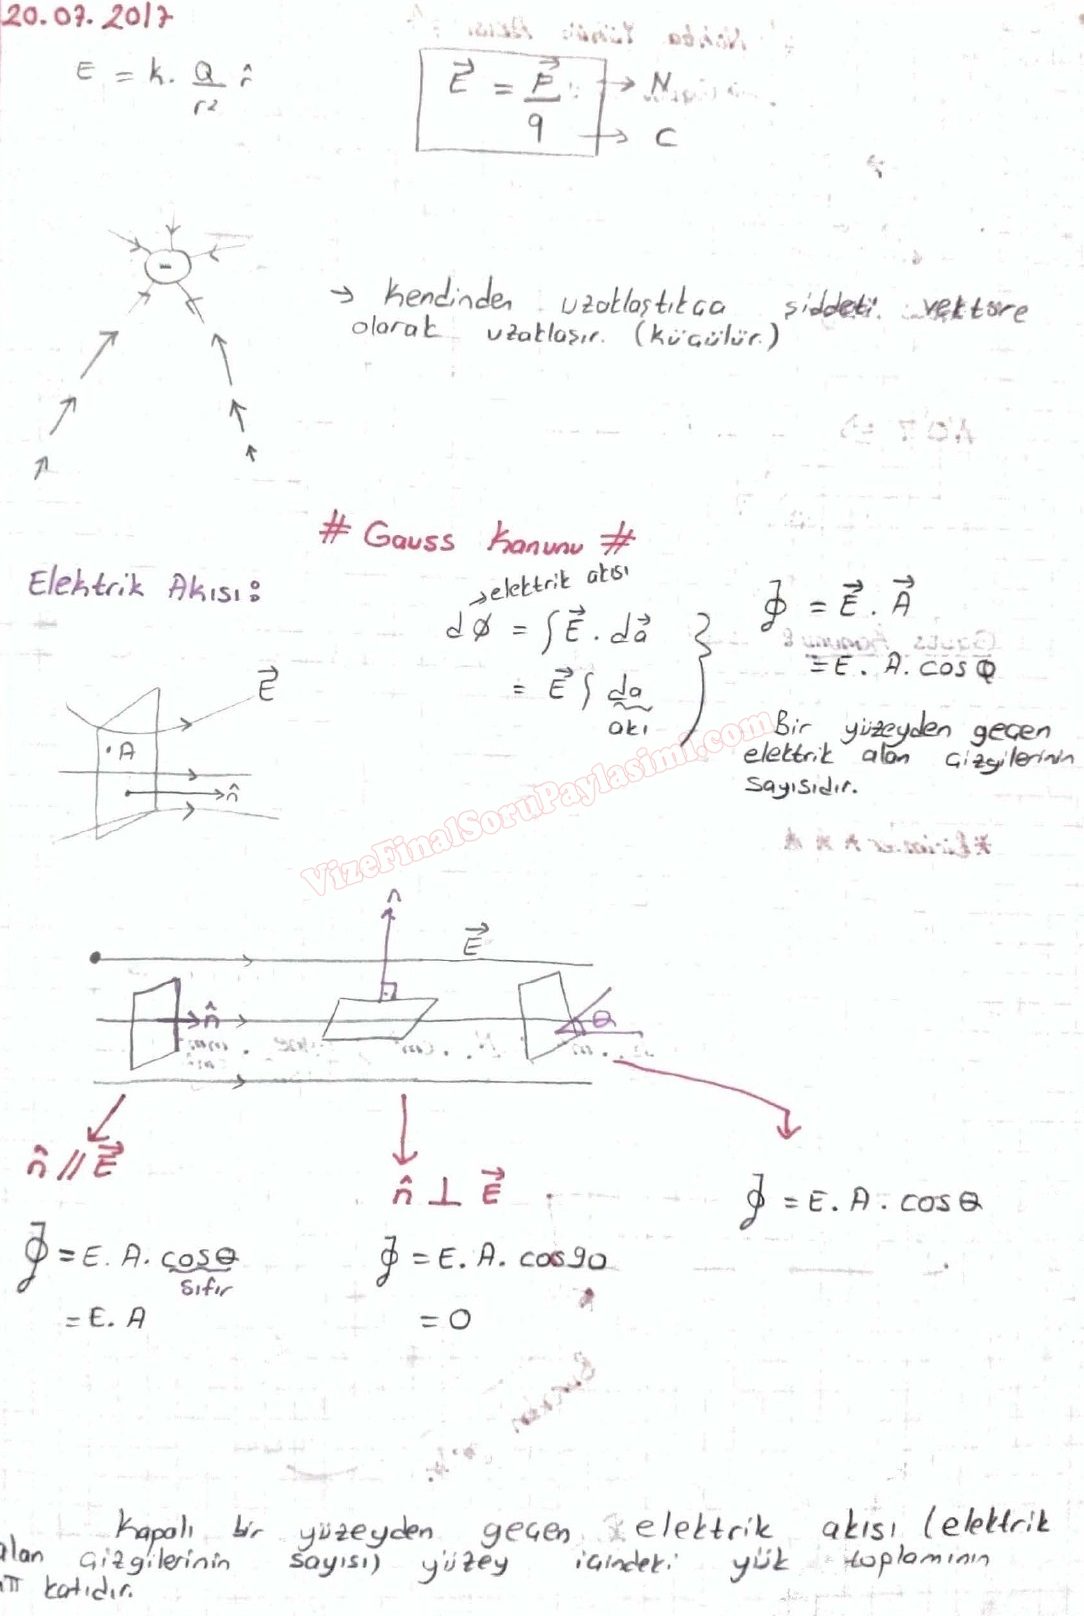 20.07.2017
E = k. Q/r² r̂
E⃗ = F⃗/q → N → C
-
→ kendinden uzaklaştıkça şiddeti vektöre
olarak uzaklaşır. (küçülür.)
# Gauss Kanunu #
Elektrik Akısı:
→ elektrik akısı
dϕ = ∫E⃗ . da⃗
= E⃗ ∫ da
akı
Φ = E⃗ . A⃗
= E. A. cosΦ
Bir yüzeyden geçen
elektrik alan çizgilerinin
sayısıdır.
E⃗
. A
n̂
VizeFinalSoruPaylasimi.com
n
E⃗
n̂
θ
n̂ // E⃗
n̂ ⊥ E⃗
Φ = E. A. cosθ
Φ = E. A. cosθ
sıfır
= E. A
Φ = E. A. cos90
= 0
Kapalı bir yüzeyden geçen elektrik akısı (elektrik
alan çizgilerinin sayısı) yüzey içindeki yük toplamının
π katıdır.